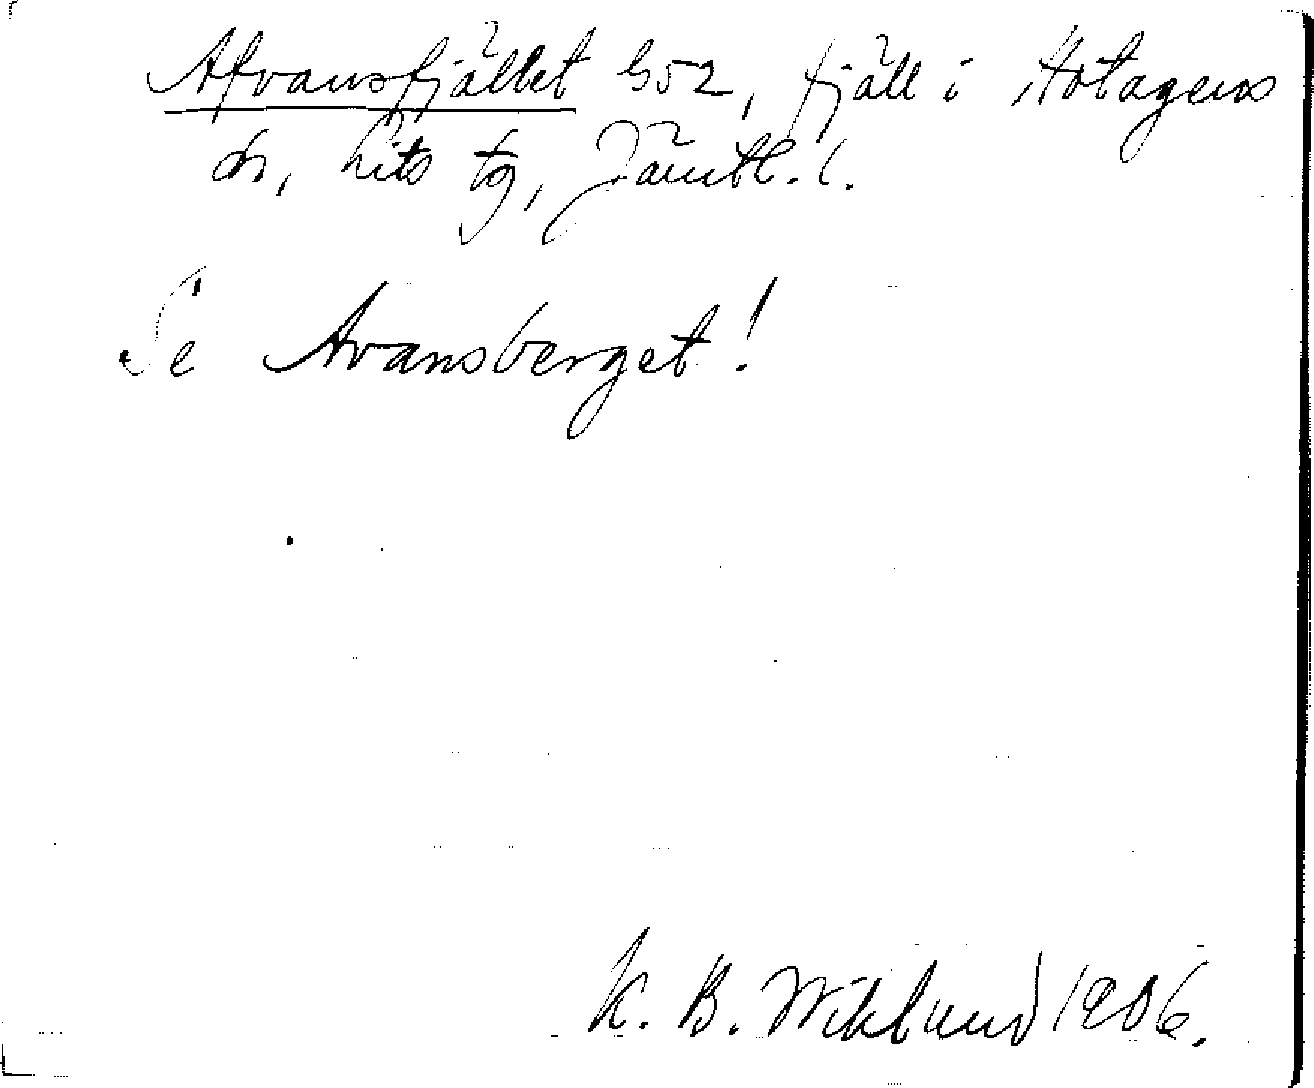 Afvansfjället G52, fjäll i Hotagens
sn, Lits tg, Jämtl. l.
Se Avansberget!
K. B. Wiklund 1906.